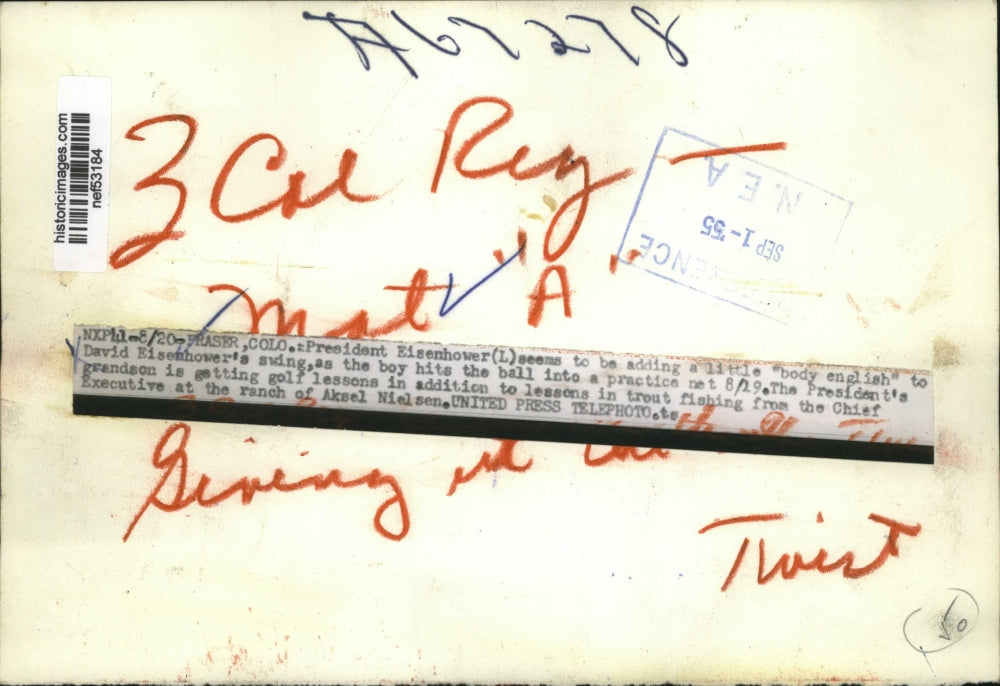 A67278
historicimages.com
nef53184
3 Col Reg —
N.E.A.
SEP 1-'55
Mat "A"
NXP41-8/20-FRASER,COLO.:President Eisenhower(L)seems to be adding a little "body english" to
David Eisenhower's swing,as the boy hits the ball into a practice net 8/19.The President's
grandson is getting golf lessons in addition to lessons in trout fishing from the Chief
Executive at the ranch of Aksel Nielsen.UNITED PRESS TELEPHOTO.ts
Giving it
Twist